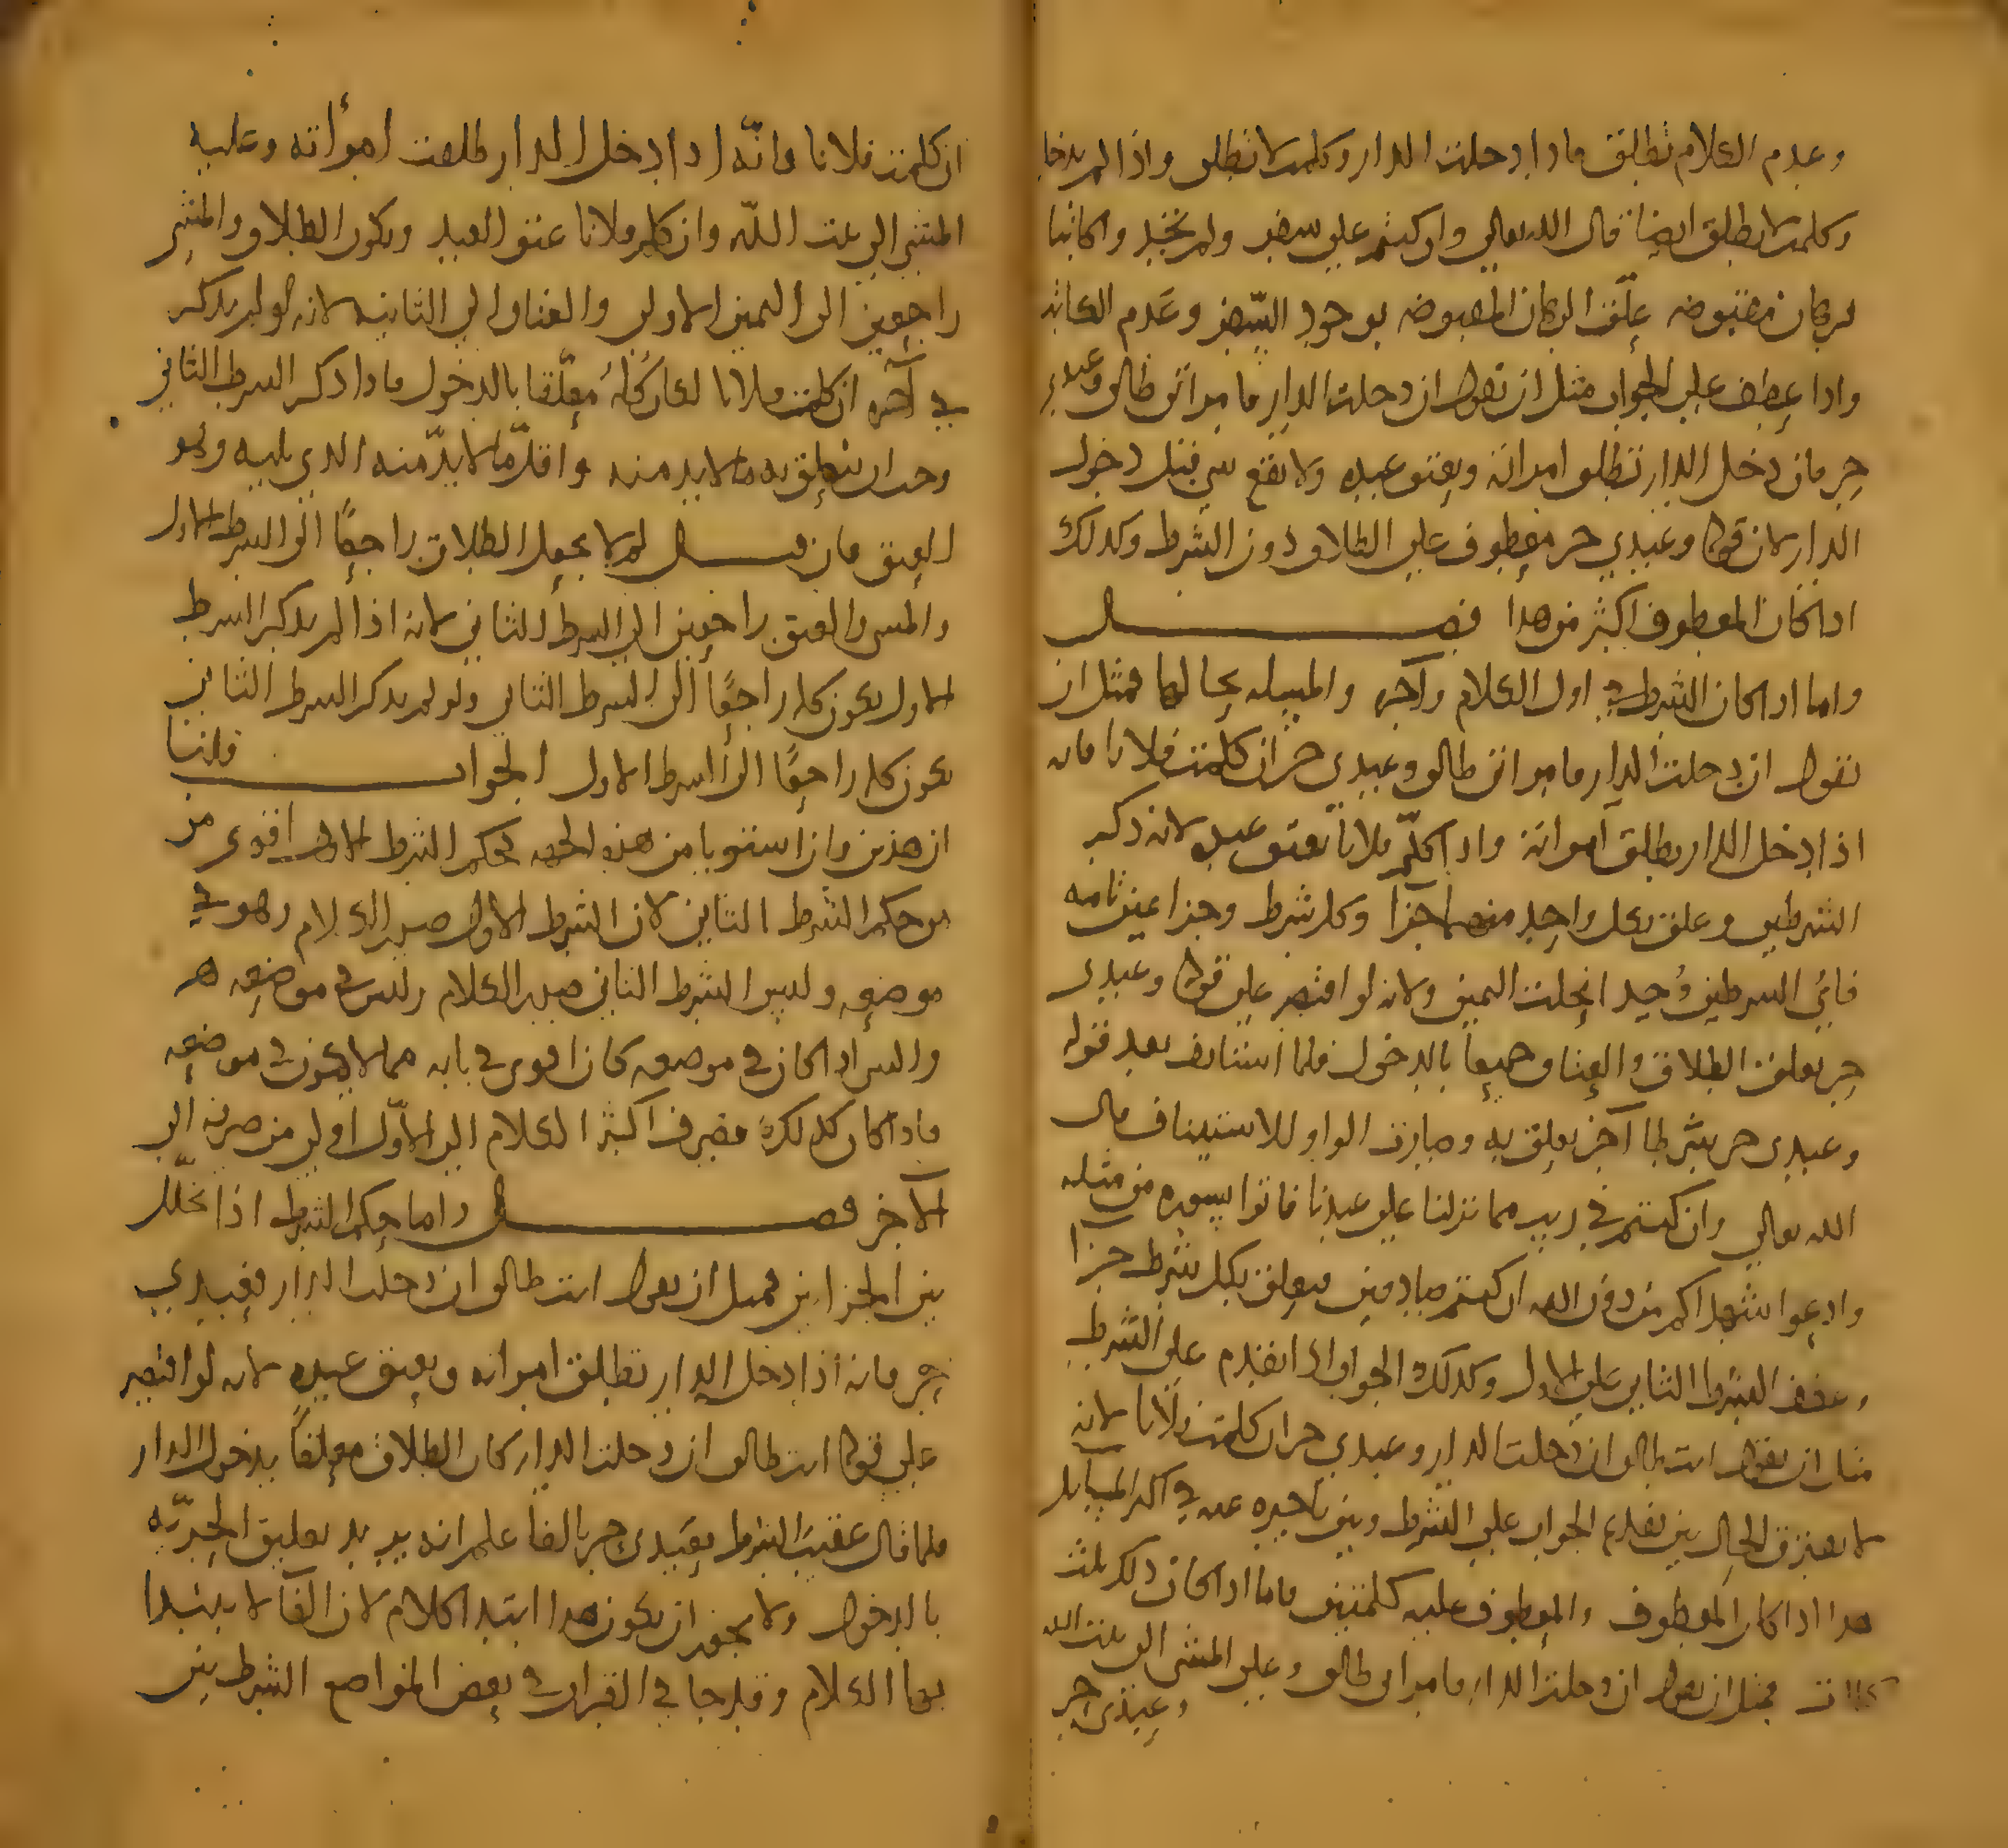 وعدم الكلام تطلق فاذا دخلت الدار وكلمت لا تطلق واذا لم يدخل
وكلمت لا يطلق ايضا قال الله تعالى وان كنتم على سفر ولم تجدوا كاتبا
فرهان مقبوضه علّق الرهان المقبوضه بوجود السّفر وعَدم الكاتب
واذا عطف على الجواب مثل ان تقول ان دخلت الدار فامراتى طالق وعبدى
حر فان دخل الدار تطلق امراته ويعتق عبده ولا يقع شى قبل دخول
الدار لان قوله وعبدي حر معطوف على الطلاق دون الشرط وكذلك
اذا كان المعطوف اكثر من هذا فصل
واما اذا كان الشرط فى اول الكلام وآخره والمسله بحالها فمثل ان
تقول ان دخلت الدار فامراتى طالق وعبدى حر ان كلمت فلانا فانه
اذا دخل الدار يطلق امراته واذا كلّم فلانا يعتق عبده لانه ذكر
الشرطين وعلق بكل واحد منهما جزا وكل شرط وجزا عين تامه
فاىّ الشرطين وُجد انحلت اليمين ولانه لو اقتصر على قوله وعبدى
حر تعلق الطلاق والعتاق جميعا بالدخول فلما استانف بعد قوله
وعبدى حر بشرطا آخر تعلق به وصارت الواو للاستيناف قال
الله تعالى وان كنتم فى ريب مما نزلنا على عبدنا فاتوا بسوره من مثله
وادعوا شهداكم من دون الله ان كنتم صادقين فيعلق بكل شرط جزا
وعطف الشرط الثاني على الاول وكذلك الجواب اذا تقدم على الشرط
مثل ان تقول انت طالق ان دخلت الدار وعبدي حر ان كلمت فلانا لانه
لا يفترق الحال بين تقديم الجواب على الشرط وبين تاخيره عنه فى اكثر المسايل
هذا اذا كان المعطوف والمعطوف عليه كلمتين فاما اذا كان ذلك بثلث
كلمات فمثل ان يقول ان دخلت الدار فامراتى طالق وعلى المشى الى بيت الله
وعبدى حر
ان كلمت فلانا فانّه اذا دخل الدار طلقت امرأته وعليه
المشي الى بيت اللّه وان كلم فلانا عتق العبد ويكون الطلاق والمشى
راجعين الى اليمين الاولى والعتاق الى الثانيه لانه لو لم يذكر
فى آخره ان كلمت فلانا لكان كُلّهُ مُعلّقا بالدخول فاذا ذكر الشرط الثاني
وجب ان يتعلق به ما لا بد منه واقل ما لا بدّ منه الذى يليه وهو
العتق فان قيل لم لا يجعل الطلاق راجعًا الى الشرط الاول
والمشى والعتق راجعين الى الشرط الثانى لانه اذا لم يذكر الشرط
الاول يكون كله راجعًا الى الشرط الثانى ولو لم يذكر الشرط الثانى
يكون كله راجعًا الى الشرط الاول الجواب قلنا
ان هذين وان استويا من هذه الجهه فحكم الشرط الاول اقوى من
من حكم الشرط الثاني لان الشرط الاول صدر الكلام وهو فى
موضعه وليس الشرط الثاني صدر الكلام وليس فى موضعه
والشى اذا كان فى موضعه كان اقوى فى بابه مما لا يكون فى موضعه
فاذا كان كذلك فصرف اكثر الكلام الى الاوّل اولى من صرفه الى
الآخر فصل واما حكم الشرط اذا تخلّل
بين الجزاين فمثل ان يقول انت طالق ان دخلت الدار فعبدي
حر فانه اذا دخل الدار تطلق امراته ويعتق عبده لانه لو اقتصر
على قوله انت طالق ان دخلت الدار كان الطلاق معلقاً بدخول الدار
فلما قال عقيب الشرط فعبدى حر بالفا علم انه يريد تعليق الحريّه
بالدخول ولا يجوز ان يكون هذا ابتدا كلام لان الفا لا يبتدا
بها الكلام وقد جا فى القران فى بعض المواضع الشرط بين